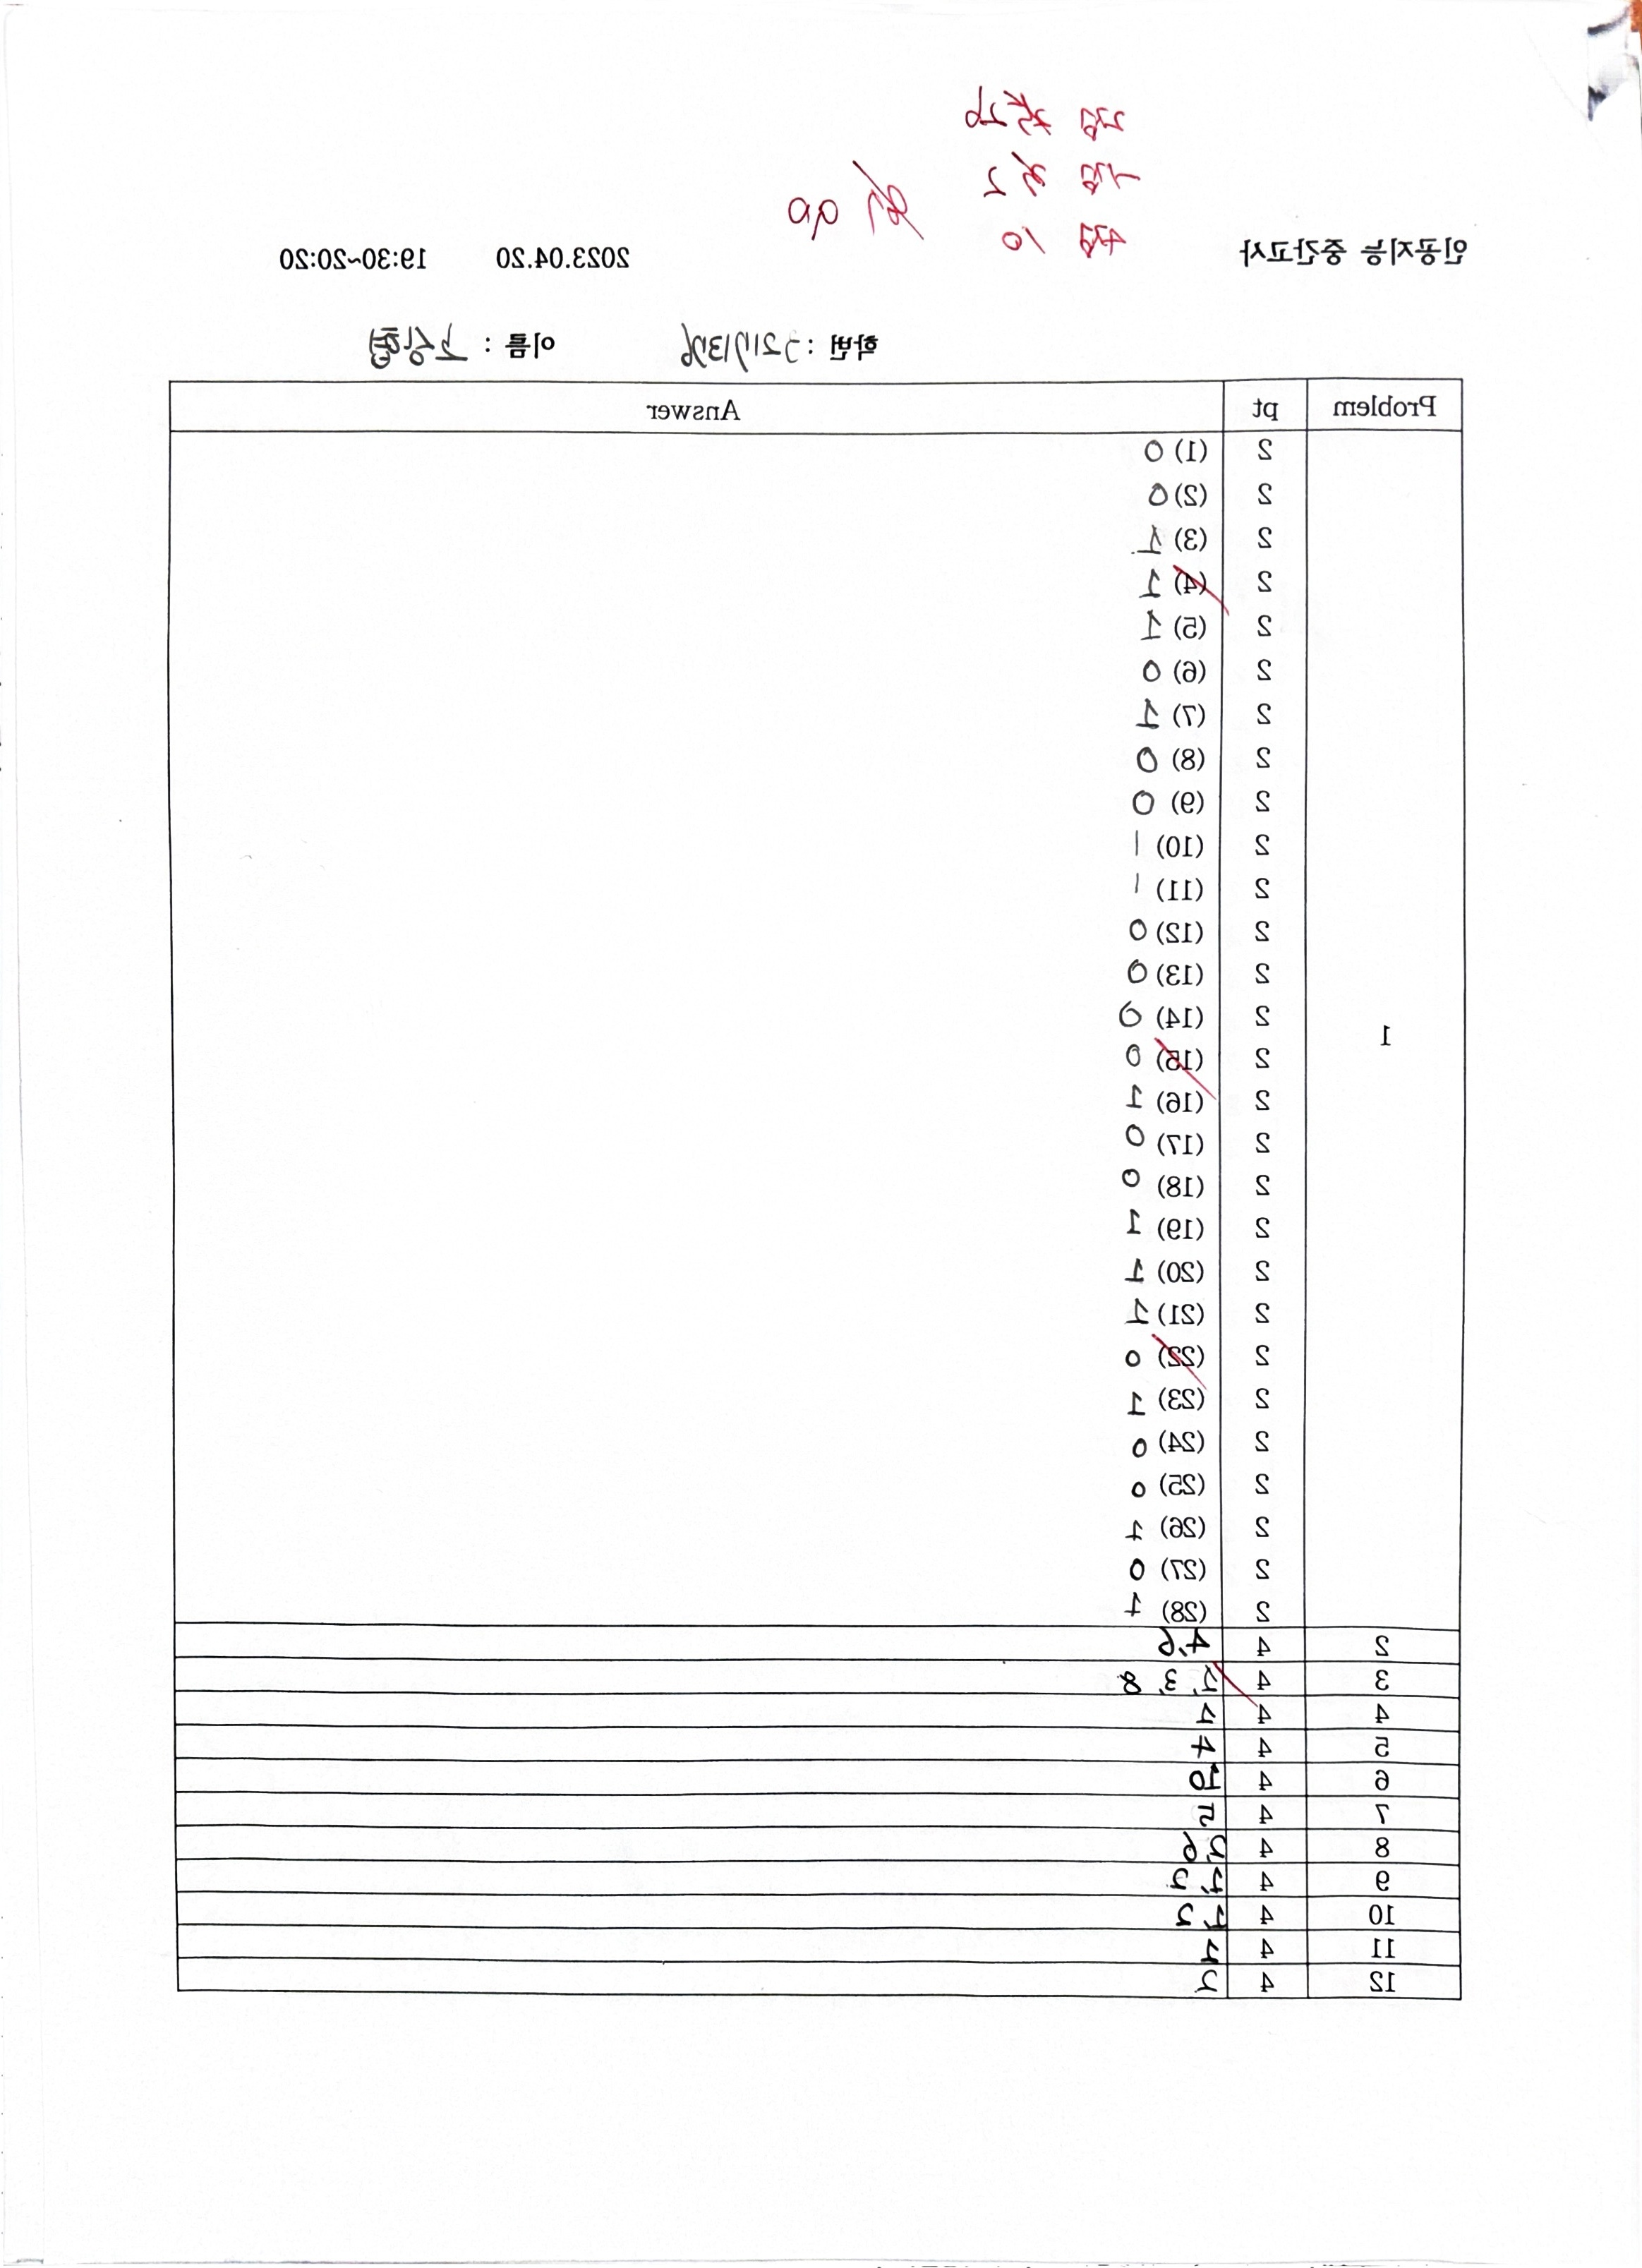 2점
1점 2
4점 10
90
인공지능 중간고사 2023.04.20 19:30~20:20
학번 : 이름 :
Problem pt Answer
1
2 (1) 0
2 (2) 0
2 (3) 1
2 (4) 1
2 (5) 1
2 (6) 0
2 (7) 1
2 (8) 0
2 (9) 0
2 (10) 1
2 (11) 1
2 (12) 0
2 (13) 0
2 (14) 0
2 (15) 0
2 (16) 1
2 (17) 0
2 (18) 0
2 (19) 1
2 (20) 1
2 (21) 1
2 (22) 0
2 (23) 1
2 (24) 0
2 (25) 0
2 (26) 1
2 (27) 0
2 (28) 1
2 4 4,6
3 4 2, 3, 8
4 4 4
5 4 4
6 4 10
7 4 5
8 4 2,6
9 4 1,2
10 4 1,2
11 4 4
12 4 2